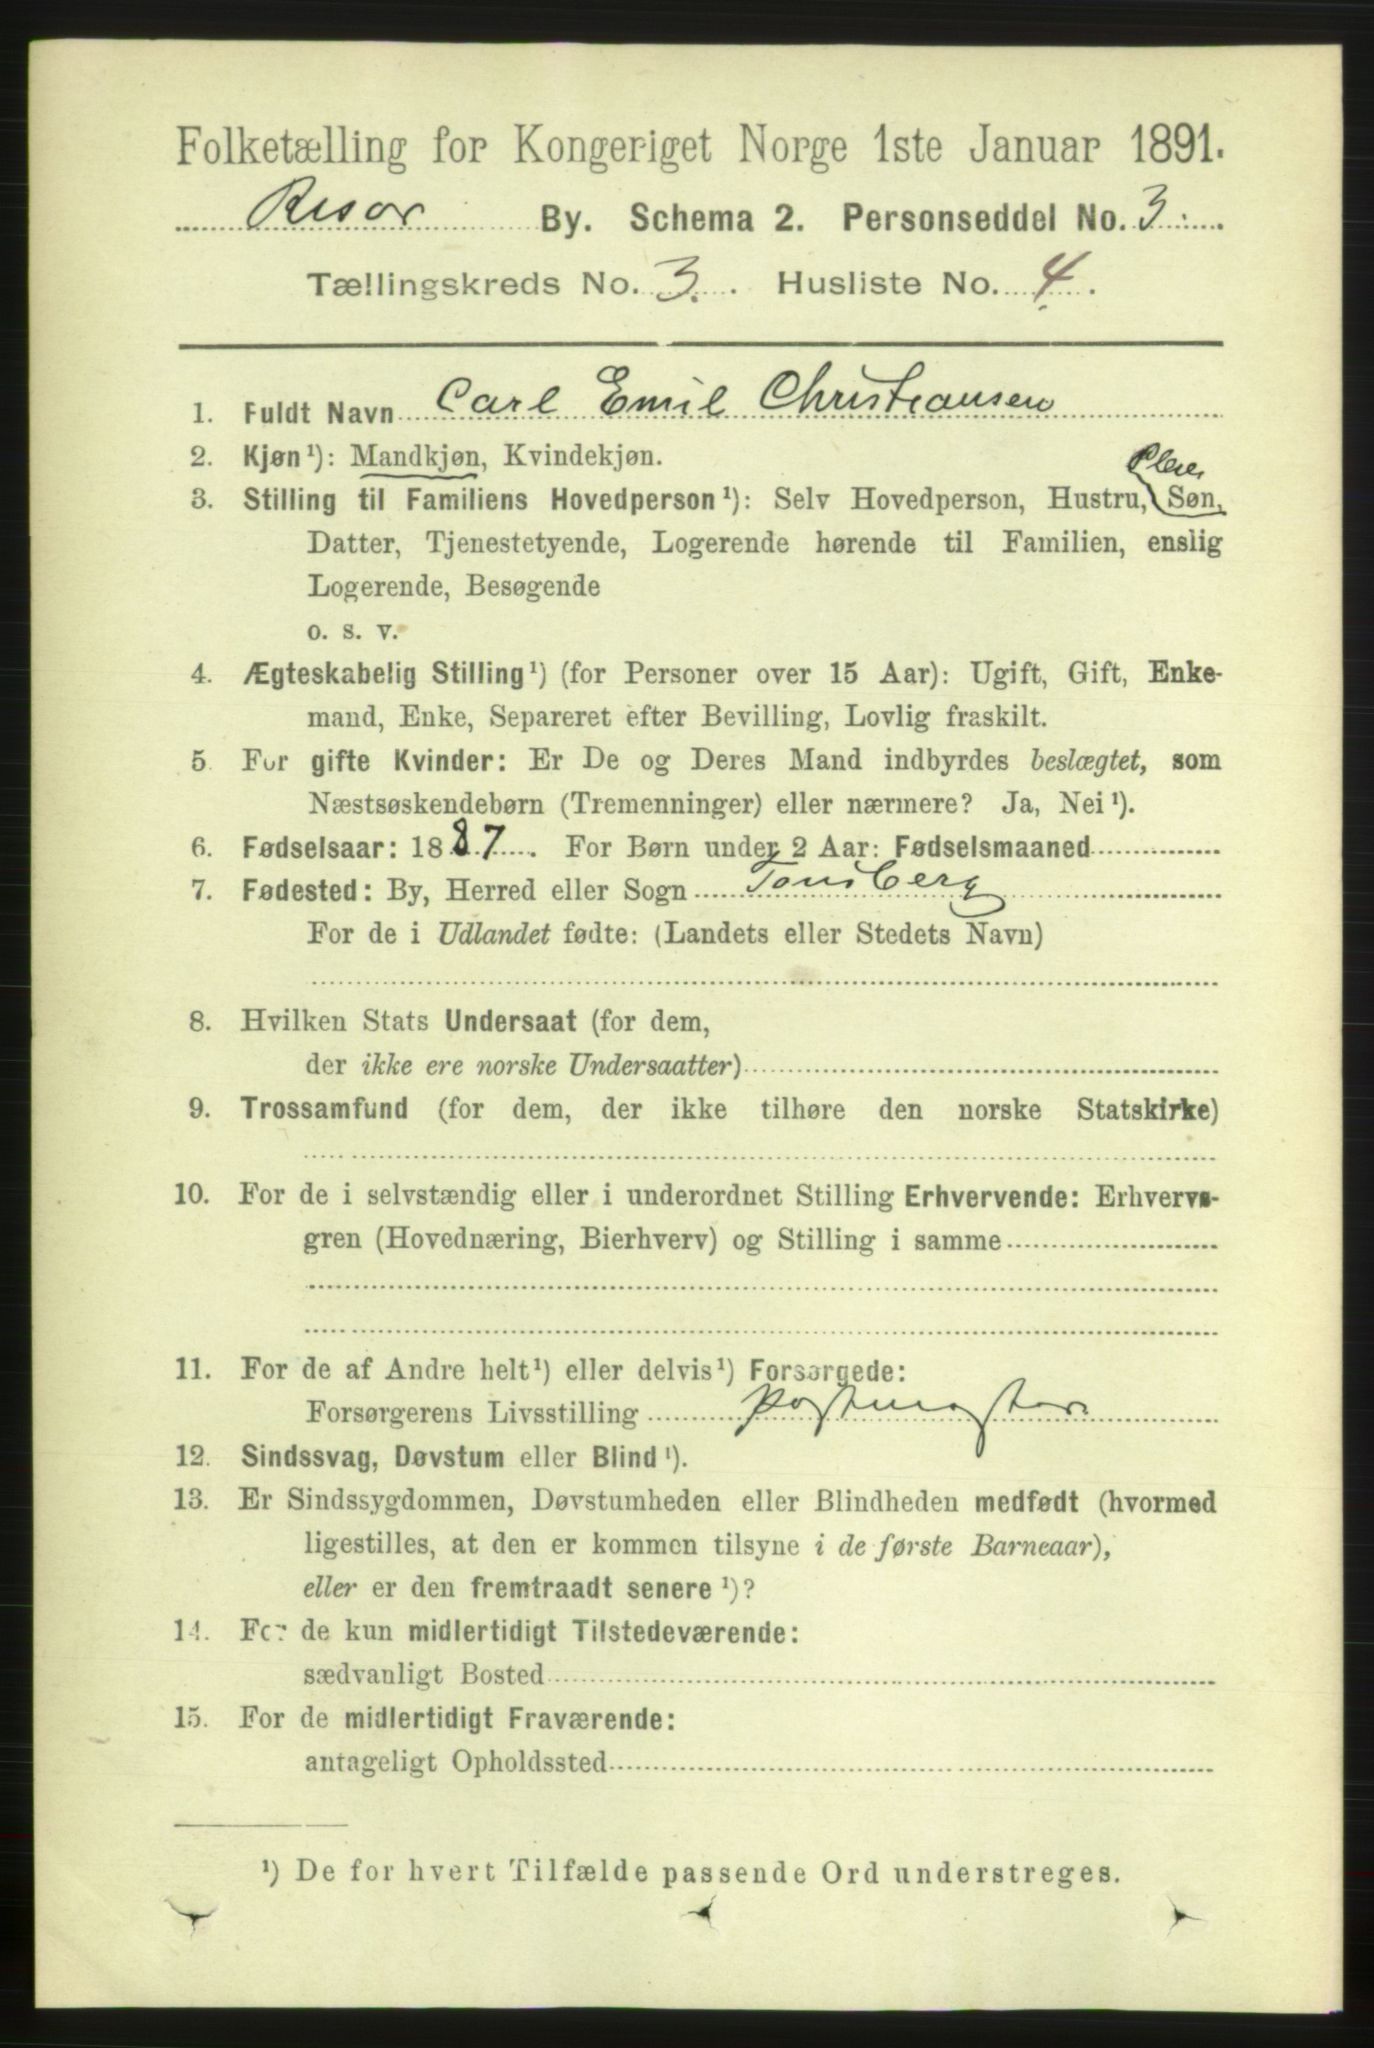 Folketælling for Kongeriget Norge 1ste Januar 1891.
Risør By. Schema 2. Personseddel No. 3.
Tællingskreds No. 3. Husliste No. 4.
1. Fuldt Navn Carl Emil Christiansen
2. Kjøn¹): Mandkjøn, Kvindekjøn.
Pleie
3. Stilling til Familiens Hovedperson¹): Selv Hovedperson, Hustru, Søn,
Datter, Tjenestetyende, Logerende hørende til Familien, enslig
Logerende, Besøgende
o. s. v.
4. Ægteskabelig Stilling¹) (for Personer over 15 Aar): Ugift, Gift, Enke-
mand, Enke, Separeret efter Bevilling, Lovlig fraskilt.
5. For gifte Kvinder: Er De og Deres Mand indbyrdes beslægtet, som
Næstsøskendebørn (Tremenninger) eller nærmere? Ja, Nei¹).
6. Fødselsaar: 1887. For Børn under 2 Aar: Fødselsmaaned
7. Fødested: By, Herred eller Sogn Tønsberg
For de i Udlandet fødte: (Landets eller Stedets Navn)
8. Hvilken Stats Undersaat (for dem,
der ikke ere norske Undersaatter)
9. Trossamfund (for dem, der ikke tilhøre den norske Statskirke)
10. For de i selvstændig eller i underordnet Stilling Erhvervende: Erhvervs-
gren (Hovednæring, Bierhverv) og Stilling i samme
11. For de af Andre helt¹) eller delvis¹) Forsørgede:
Forsørgerens Livsstilling Postmester
12. Sindssvag, Døvstum eller Blind¹).
13. Er Sindssygdommen, Døvstumheden eller Blindheden medfødt (hvormed
ligestilles, at den er kommen tilsyne i de første Barneaar),
eller er den fremtraadt senere¹)?
14. For de kun midlertidigt Tilstedeværende:
sædvanligt Bosted
15. For de midlertidigt Fraværende:
antageligt Opholdssted
¹) De for hvert Tilfælde passende Ord understreges.